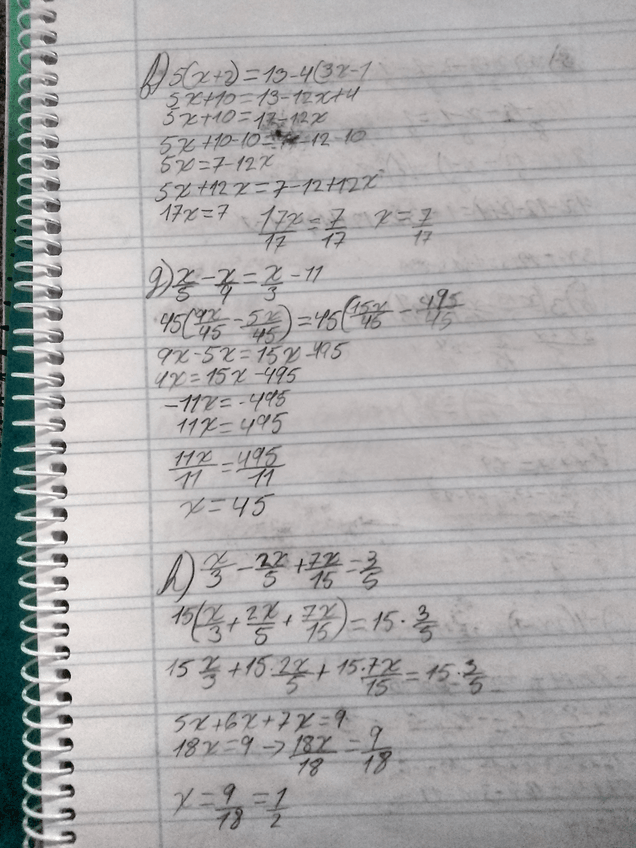 f) 5(x+2)=13-4(3x-1
5x+10=13-12x+4
5x+10=17-12x
5x+10-10= -12-10
5x=7-12x
5x+12x=7-12+12x
17x=7 17x/17=7/17 x=7/17
g) x/5-x/9=x/3-11
45(9x/45-5x/45)=45(15x/45-495/45
9x-5x=15x-495
4x=15x-495
-11x=-495
11x=495
11x/11=495/11
x=45
h) x/3-2x/5+7x/15=3/5
15(x/3+2x/5+7x/15)=15·3/5
15x/3+15·2x/5+15·7x/15=15·3/5
5x+6x+7x=9
18x=9->18x/18=9/18
x=9/18=1/2